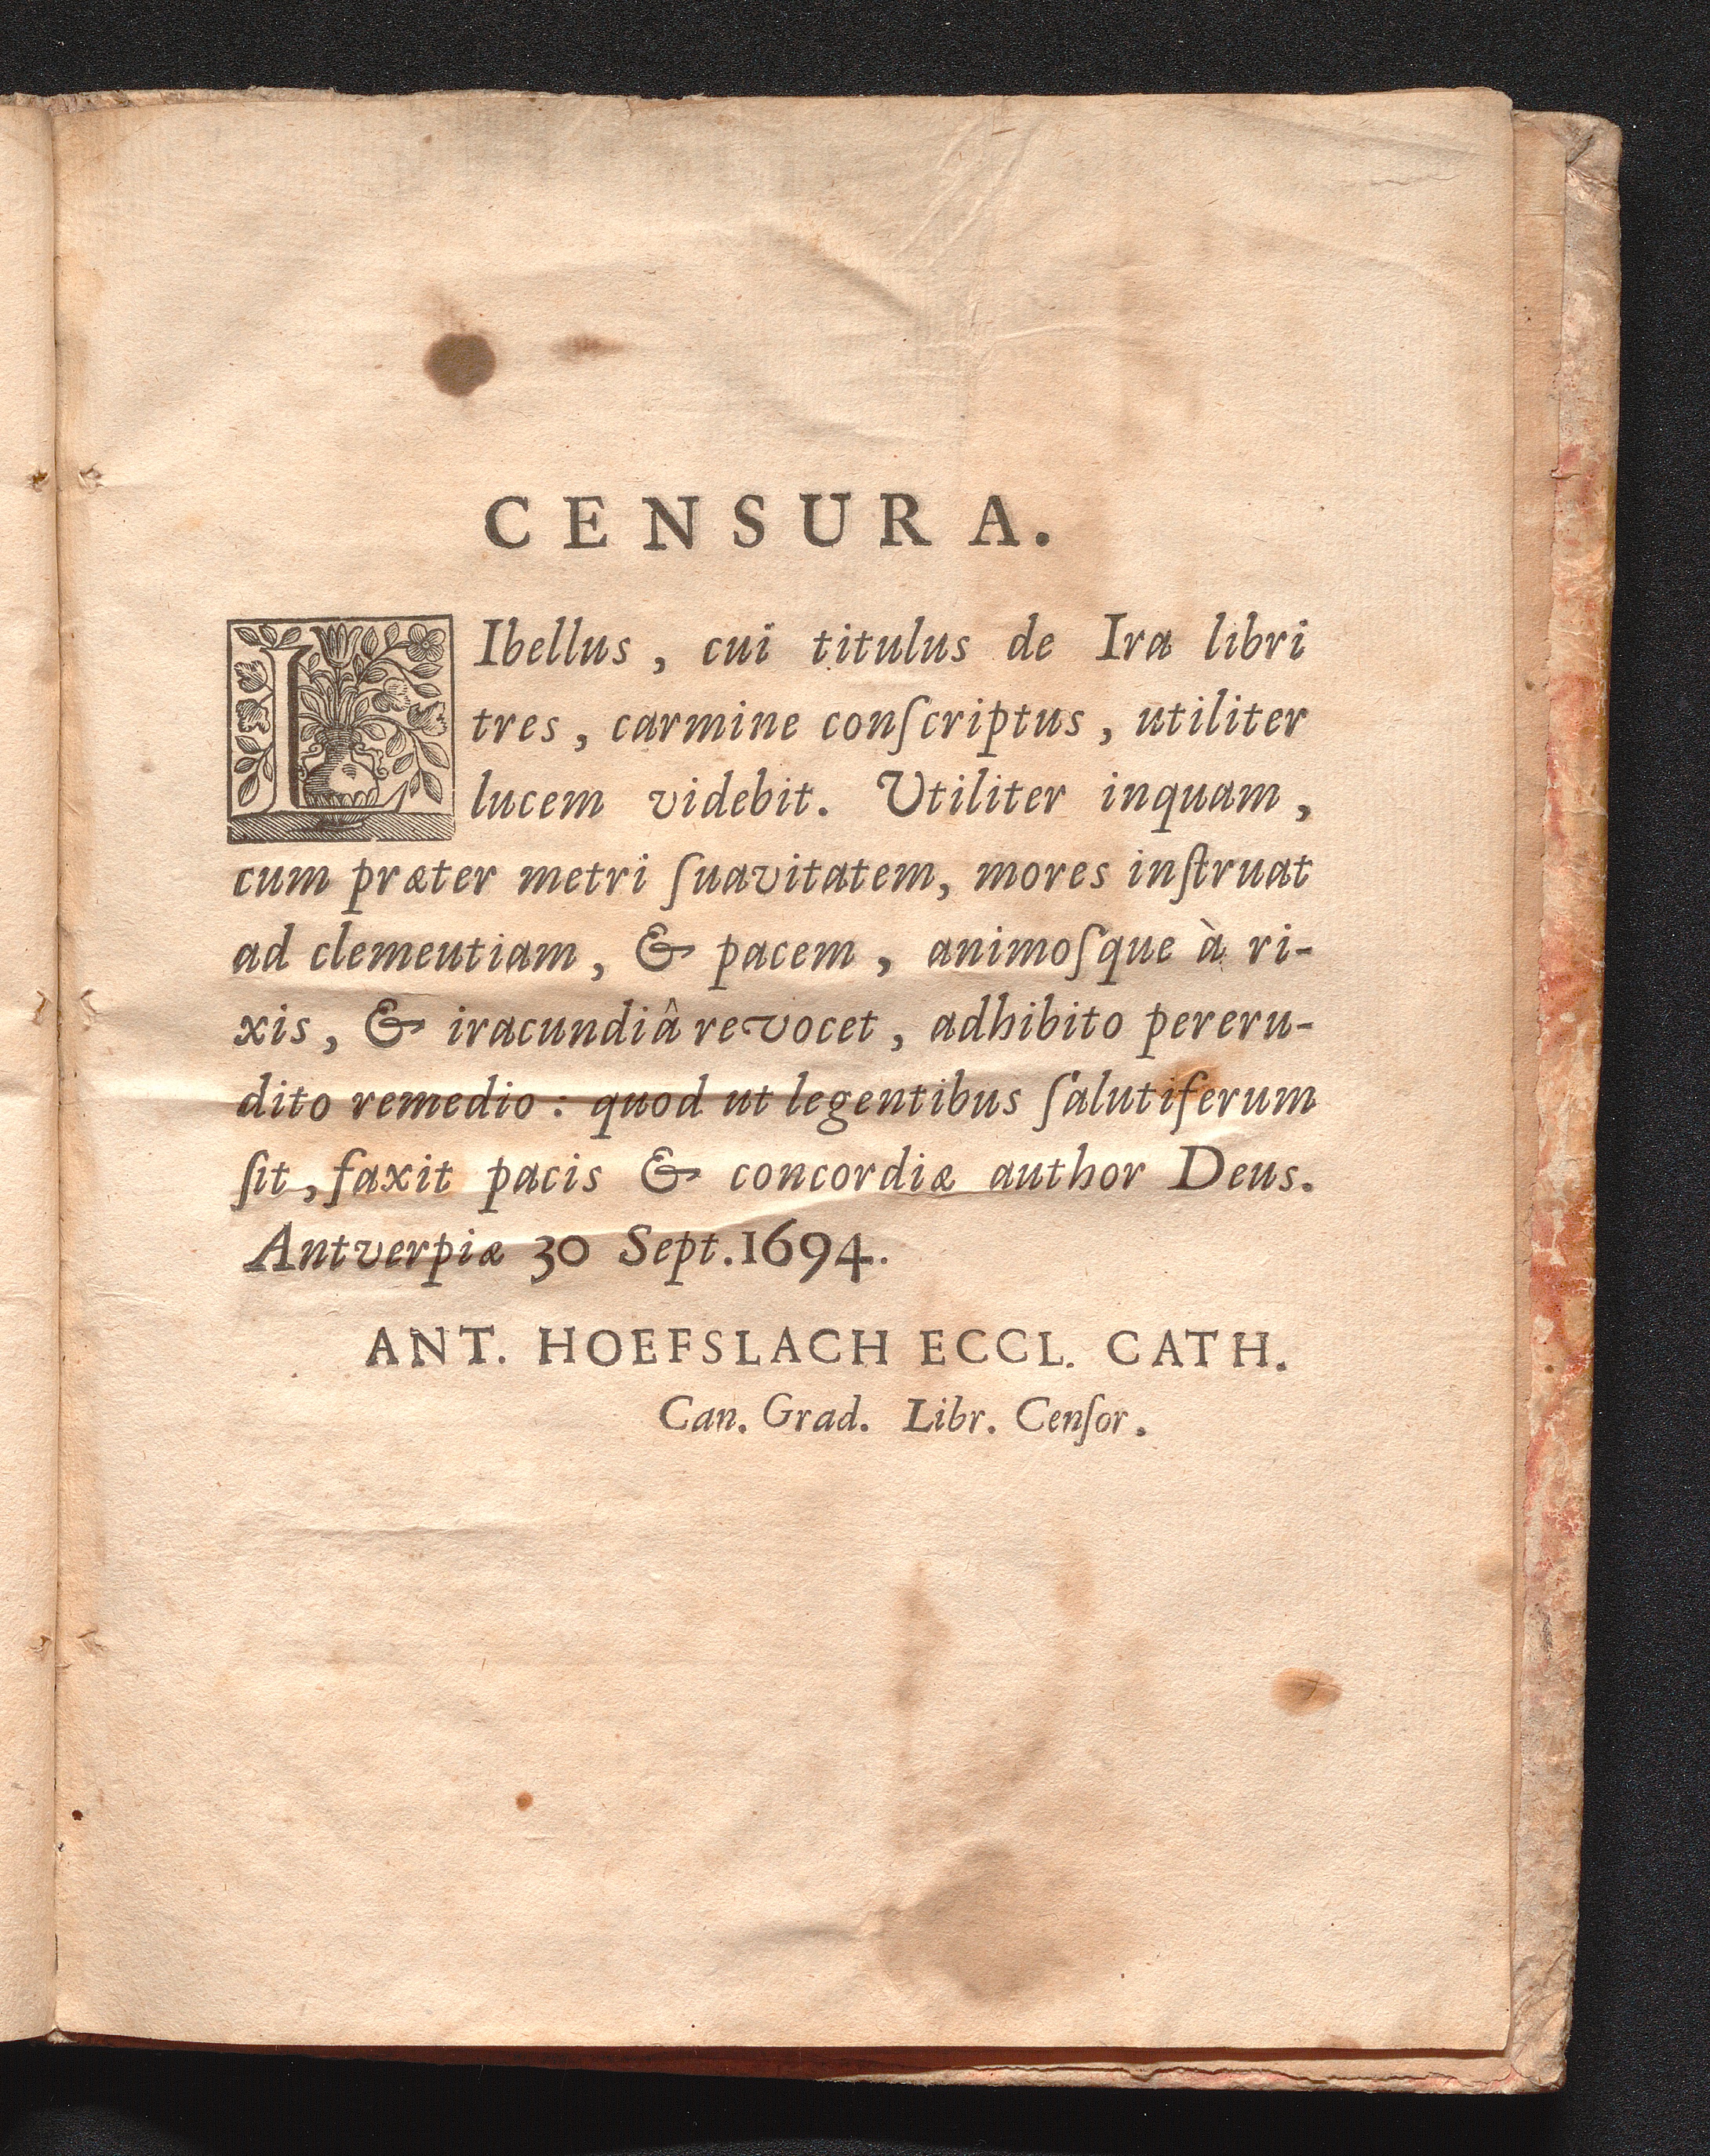 CENSURA.
LIbellus, cui titulus de Ira libri
tres, carmine conſcriptus, utiliter
lucem videbit. Utiliter inquam,
cum præter metri ſuavitatem, mores inſtruat
ad clemeutiam, & pacem, animoſque à ri-
xis, & iracundiâ revocet, adhibito pereru-
dito remedio: quod ut legentibus ſalutiferum
ſit, faxit pacis & concordiæ author Deus.
Antverpiæ 30 Sept. 1694.
ANT. HOEFSLACH ECCL. CATH.
Can. Grad. Libr. Cenſor.